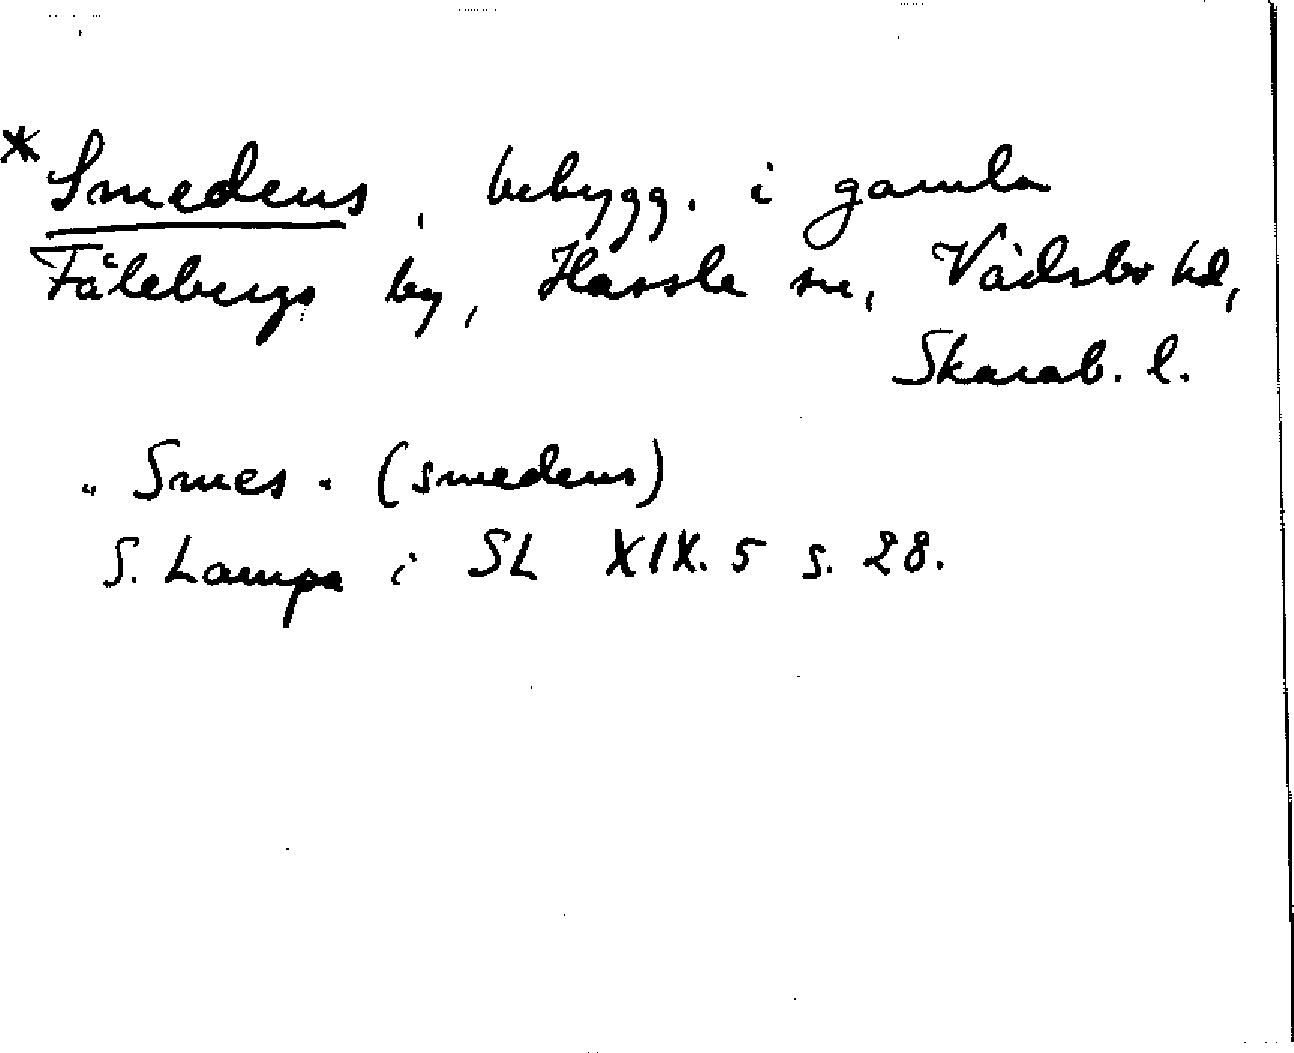 * Smedens, bebygg. i gamla
Fålebergs by, Hassle sn, Vadsbo hd,
Skarab. l.
"Smes" (smedens)
S. Lampa i SL XIX. 5 s. 28.